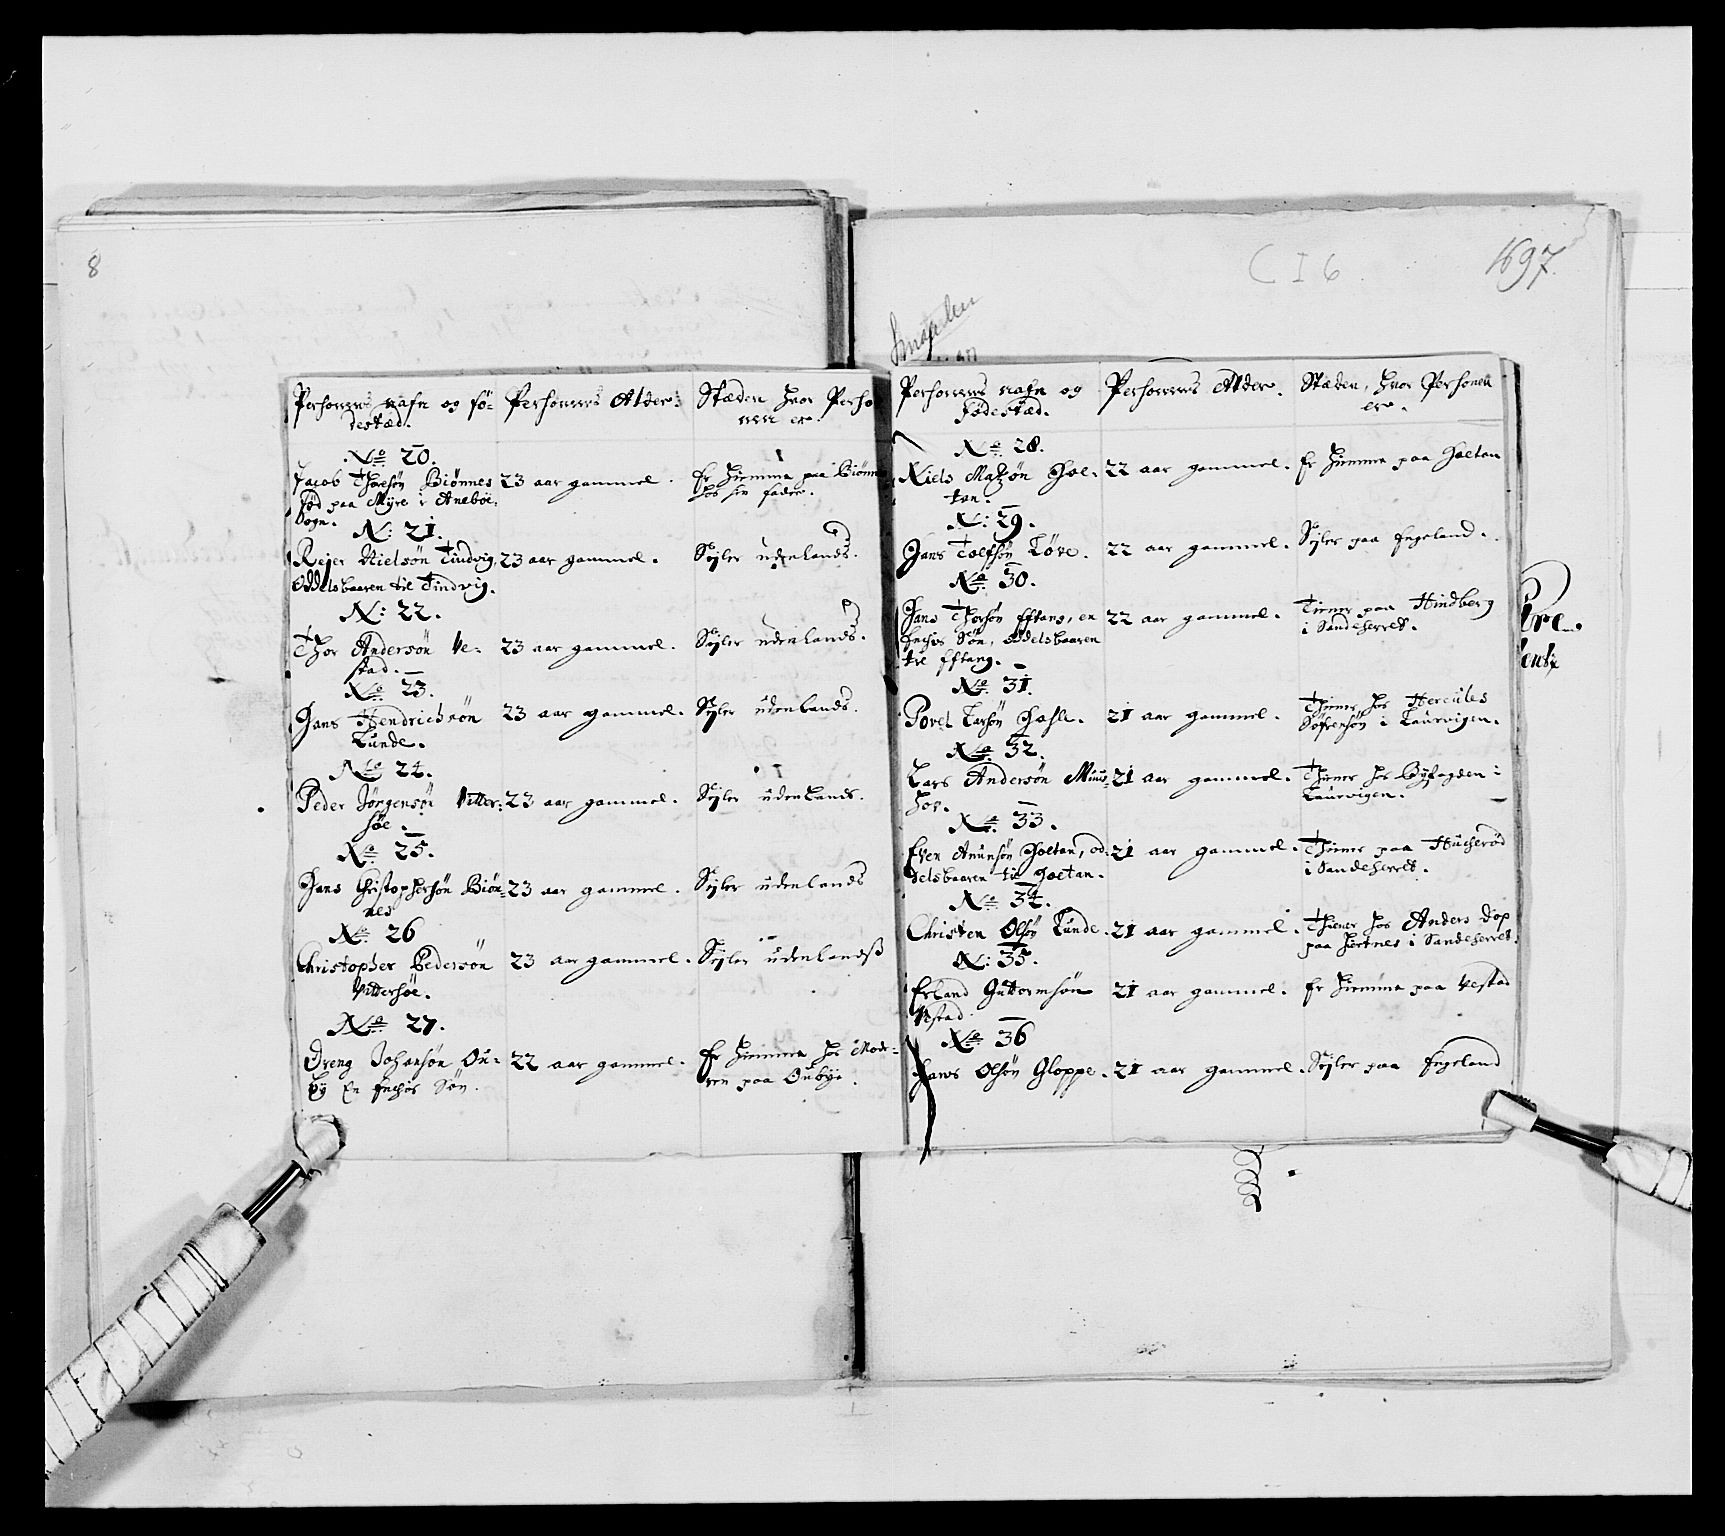 8
C I 6
1697
Personens nafn og fö-
destæd.
Personens Alder.
Stæden hvor Perso
nen er.
No 20.
Jacob Thorsön Biönnes
föd paa Myre i Aneböe
Sogn.
23 aar gammel.
Er hiemme paa Biönnes
hos sin fader.
N: 21.
Rejer Nielsön Tindvig,
Oddelsbaaren til Tindvig.
23 aar gammel.
Sejler udenlands.
N: 22.
Thor Andersön Ve-
stad.
23 aar gammel.
Sejler udenlands.
No 23.
Hans Hendrichsön
Lunde.
23 aar gammel.
Sejler udenlands.
No 24.
Peder Jörgensön Vitter-
söe.
23 aar gammel.
Sejler udenlands.
No 25.
Hans Christophersön Biön-
nes
23 aar gammel.
Sejler udenlands
No 26
Christopher Pedersön
Vittersöe.
23 aar gammel.
Sejler udenlands
No 27.
Dreng Johansön Ou-
by En Enches Sön.
22 aar gammel.
Er hiemme hos Mode-
ren paa Oubye.
Personens nafn og
Födestæd.
Personens Alder.
Stæden, hvor Personen
er.
No 28.
Niels Matzön Goe-
tan.
22 aar gammel.
Er hiemme paa Goetan
N: 29.
Hans Tolfsön Löve.
22 aar gammel.
Sejler paa Engeland.
No 30.
Hans Thorsön Eftang, en
Enches Sön, oddelsbaaren
til Eftang.
22 aar gammel.
Tiener paa Hindberg
i Sandeherret.
No 31.
Povel Larsön Hasle.
21 aar gammel.
Thiener hos Hercules
Söfrensön i Laurvigen.
No 32.
Lars Andersön Muus-
hov.
21 aar gammel.
Thiener hos Byfogden i
Laurvigen.
No 33.
Even Anunsön Goetan, od-
delsbaaren til Goetan.
21 aar gammel.
Thiener paa Hucheröd
i Sandeherret.
No 34.
Christen Olsön Lunde.
21 aar gammel.
Thiener hos Anders Dop
paa Hertnes i Sandeherret.
N: 35.
Erland Guttormsön
Vestad.
21 aar gammel.
Er hiemme paa Vestad
No 36
Hans Olsön Gloppe.
21 aar gammel.
Sejler paa Engeland